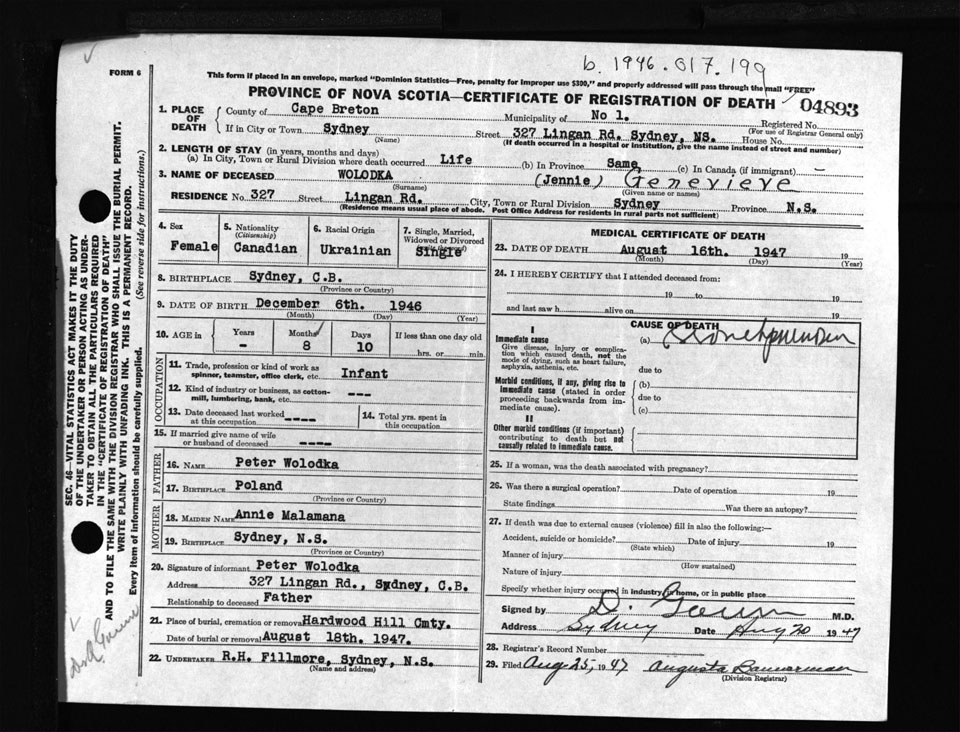 b. 1946.017.199
FORM 6
This form if placed in an envelope, marked "Dominion Statistics—Free, penalty for improper use $300," and properly addressed will pass through the mail "FREE"
PROVINCE OF NOVA SCOTIA—CERTIFICATE OF REGISTRATION OF DEATH
04893
1. PLACE OF DEATH
County of Cape Breton Municipality of No 1. Registered No.
(For use of Registrar General only)
If in City or Town Sydney Street 327 Lingan Rd. Sydney, NS. House No.
(Name) (If death occurred in a hospital or institution, give the name instead of street and number)
2. LENGTH OF STAY (in years, months and days)
(a) In City, Town or Rural Division where death occurred Life (b) In Province Same (c) In Canada (if immigrant) —
3. NAME OF DECEASED WOLODKA (Jennie) Genevieve
(Surname) (Given name or names)
RESIDENCE No 327 Street Lingan Rd. City, Town or Rural Division Sydney Province N.S.
(Residence means usual place of abode. Post Office Address for residents in rural parts not sufficient)
4. Sex
Female
5. Nationality
(Citizenship)
Canadian
6. Racial Origin
Ukrainian
7. Single, Married, Widowed or Divorced
Single
8. BIRTHPLACE Sydney, C.B.
(Province or Country)
9. DATE OF BIRTH December 6th. 1946
(Month) (Day) (Year)
10. AGE in Years Months Days If less than one day old
- 8 10 hrs. or min.
OCCUPATION
11. Trade, profession or kind of work as spinner, teamster, office clerk, etc. Infant
12. Kind of industry or business, as cotton-mill, lumbering, bank, etc. ---
13. Date deceased last worked at this occupation ----
14. Total yrs. spent in this occupation
15. If married give name of wife or husband of deceased ----
FATHER
16. NAME Peter Wolodka
17. BIRTHPLACE Poland
(Province or Country)
MOTHER
18. MAIDEN NAME Annie Malamana
19. BIRTHPLACE Sydney, N.S.
(Province or Country)
20. Signature of informant Peter Wolodka
Address 327 Lingan Rd., Sydney, C.B.
Relationship to deceased Father
21. Place of burial, cremation or removal Hardwood Hill Cmty.
Date of burial or removal August 18th. 1947.
22. UNDERTAKER R.H. Fillmore, Sydney, N.S.
(Name and address)
MEDICAL CERTIFICATE OF DEATH
23. DATE OF DEATH August 16th. 1947 19
(Month) (Day) (Year)
24. I HEREBY CERTIFY that I attended deceased from:
19 to 19
and last saw h alive on 19
CAUSE OF DEATH
I
Immediate cause
Give disease, injury or complication which caused death, not the mode of dying, such as heart failure, asphyxia, asthenia, etc.
(a)
due to
Morbid conditions, if any, giving rise to immediate cause (stated in order proceeding backwards from immediate cause).
(b)
due to
(c)
II
Other morbid conditions (if important) contributing to death but not causally related to immediate cause.
25. If a woman, was the death associated with pregnancy?
26. Was there a surgical operation? Date of operation 19
State findings Was there an autopsy?
27. If death was due to external causes (violence) fill in also the following:—
Accident, suicide or homicide? Date of injury 19
(State which)
Manner of injury
(How sustained)
Nature of injury
Specify whether injury occurred in industry, in home, or in public place
Signed by D. M.D.
Address Sydney Date Aug 20 1947
28. Registrar's Record Number
29. Filed Aug 25, 1947 Augusta Bannerman
(Division Registrar)
SEC. 46—VITAL STATISTICS ACT MAKES IT THE DUTY
OF THE UNDERTAKER OR PERSON ACTING AS UNDER-
TAKER TO OBTAIN ALL THE PARTICULARS REQUIRED
IN THE "CERTIFICATE OF REGISTRATION OF DEATH"
AND TO FILE THE SAME WITH THE DIVISION REGISTRAR WHO SHALL ISSUE THE BURIAL PERMIT.
WRITE PLAINLY WITH UNFADING INK. THIS IS A PERMANENT RECORD.
Every item of information should be carefully supplied. (See reverse side for instructions.)